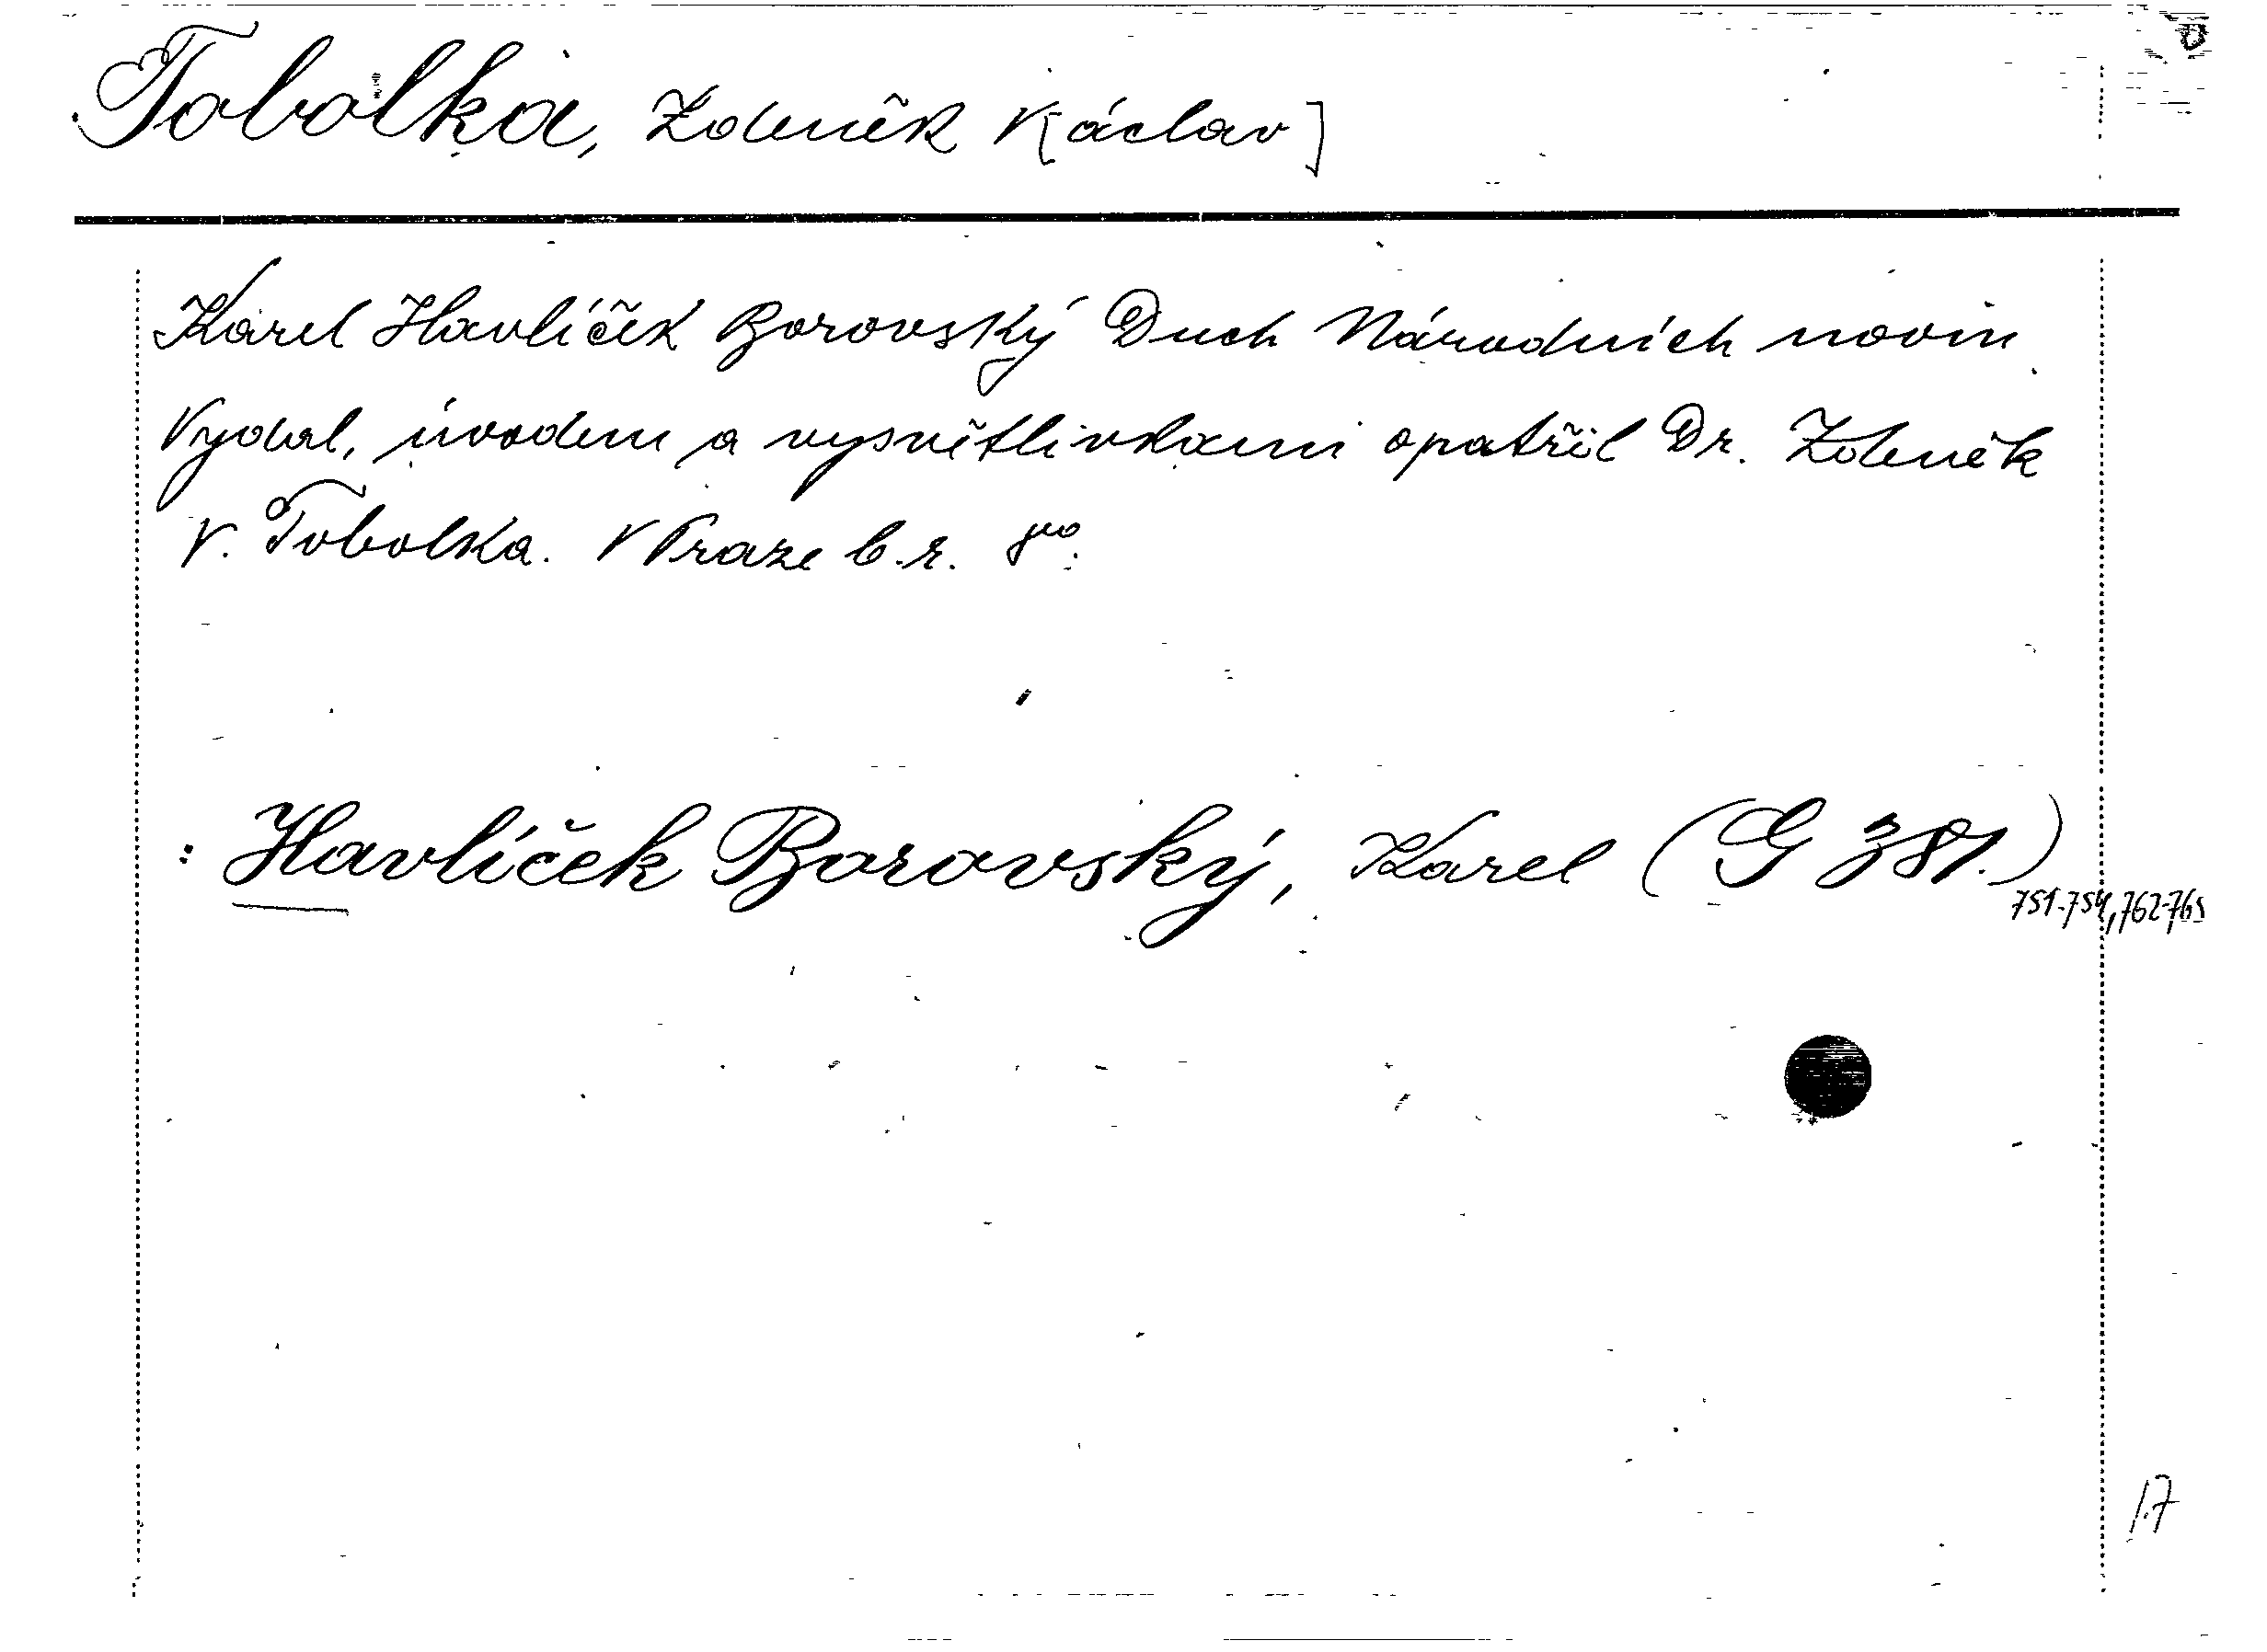 Tobolka, Zdeněk V[áclav]
Karel Havlíček Borovský Duch Národních novin
Vydal, úvodem a vysvětlivkami opatřil Dr. Zdeněk
V. Tobolka. V Praze b.r. 8vo.
: Havlíček Borovský, Karel (G 381.)
751-754, 762-765
17